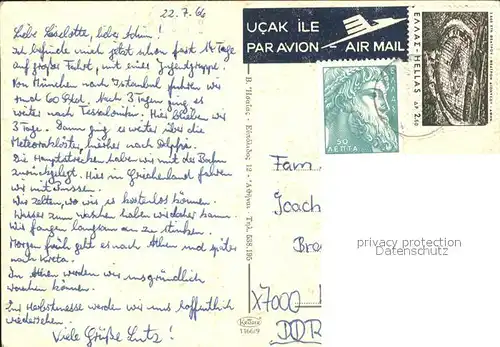 22.7.66
Liebe Liselotte, lieber Achim!
Ich befinde mich jetzt schon fast 14 Tage
auf großer Fahrt, mit einer Jugendgruppe.
Von München nach Istanbul fuhren wir
rund 60 Std. Nach 3 Tagen ging es
weiter nach Tessaloniki. Hier blieben wir
3 Tage. Dann ging es weiter über die
Meteoraklöster, hierher nach Delphi.
Die Hauptstrecken haben wir mit der Bahn
zurückgelegt. Hier in Griechenland fahren
wir mit Bussen.
Wir zelten, wo wir es kostenlos können.
Wasser zum waschen haben wir daher kaum.
Wir fangen langsam an zu stinken.
Morgen früh geht es nach Athen und später
nach Kreta.
In Athen werden wir uns gründlich
waschen können.
Zur Herbstmesse werden wir uns hoffentlich
wiedersehen.
Viele Grüße Lutz!
UÇAK İLE
PAR AVION - AIR MAIL
ΕΛΛΑΣ-HELLAS
ΔΡ. 2.50
50
ΛΕΠΤΑ
12 - Ἀθῆναι Τηλ. 538.195
Fam.
Joach
X7000
DDR
privacy protection
Datenschutz
1166/9